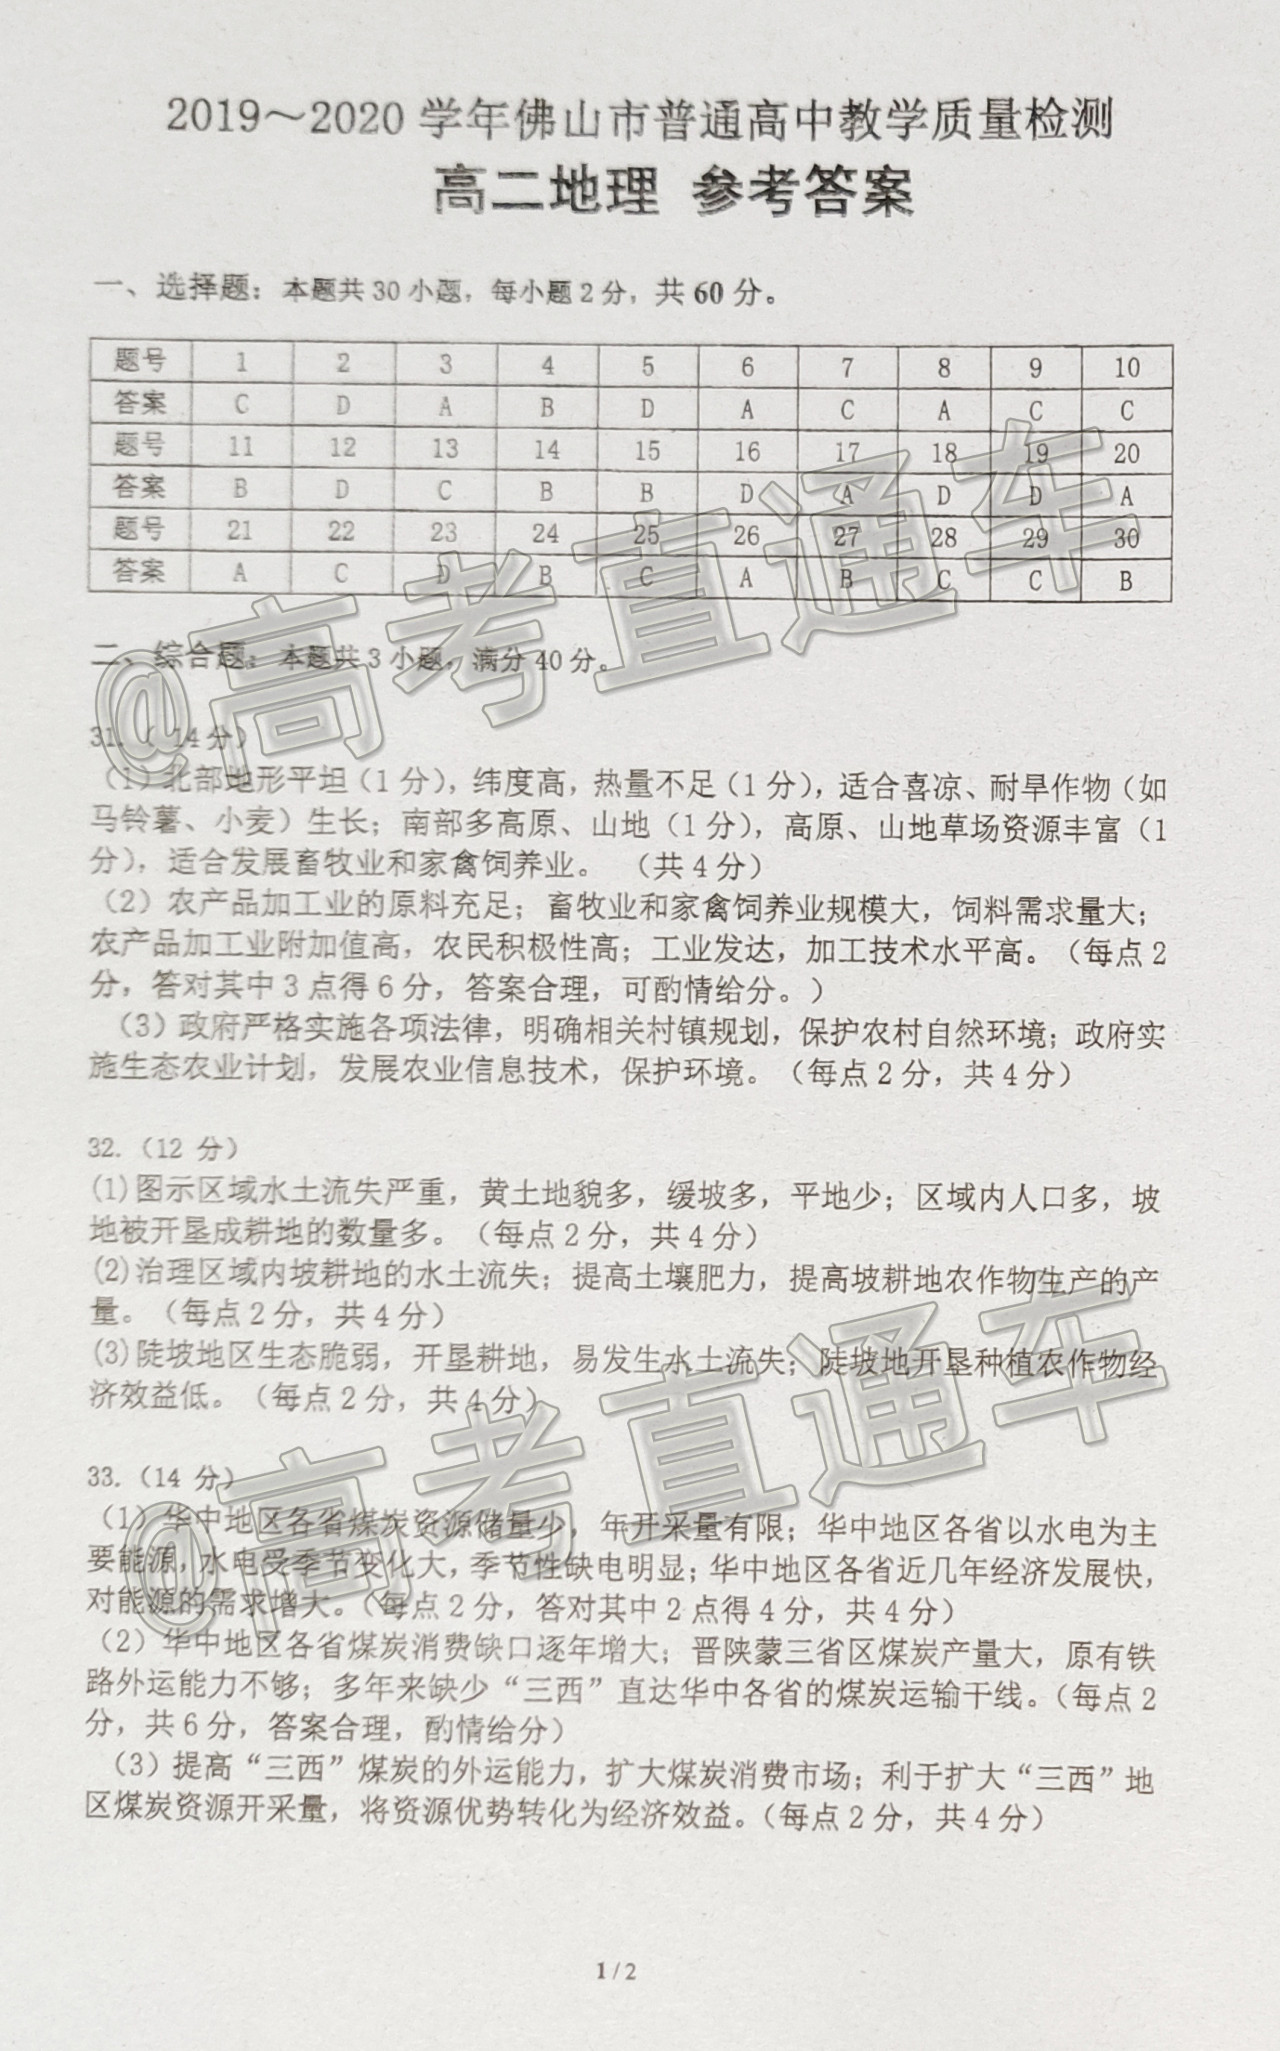 2019～2020 学年佛山市普通高中教学质量检测
高二地理 参考答案
一、选择题：本题共 30 小题，每小题 2 分，共 60 分。
题号 1 2 3 4 5 6 7 8 9 10
答案 C D A B D A C A C C
题号 11 12 13 14 15 16 17 18 19 20
答案 B D C B B D A D D A
题号 21 22 23 24 25 26 27 28 29 30
答案 A C D B C A B C C B
二、综合题：本题共 3 小题，满分 40 分。
31.（ 14 分）
（1）北部地形平坦（1 分），纬度高，热量不足（1 分），适合喜凉、耐旱作物（如
马铃薯、小麦）生长；南部多高原、山地（1 分），高原、山地草场资源丰富（1
分），适合发展畜牧业和家禽饲养业。 （共 4 分）
（2）农产品加工业的原料充足；畜牧业和家禽饲养业规模大，饲料需求量大；
农产品加工业附加值高，农民积极性高；工业发达，加工技术水平高。（每点 2
分，答对其中 3 点得 6 分，答案合理，可酌情给分。）
（3）政府严格实施各项法律，明确相关村镇规划，保护农村自然环境；政府实
施生态农业计划，发展农业信息技术，保护环境。（每点 2 分，共 4 分）
32.（12 分）
(1)图示区域水土流失严重，黄土地貌多，缓坡多，平地少；区域内人口多，坡
地被开垦成耕地的数量多。（每点 2 分，共 4 分）
(2)治理区域内坡耕地的水土流失；提高土壤肥力，提高坡耕地农作物生产的产
量。（每点 2 分，共 4 分）
(3)陡坡地区生态脆弱，开垦耕地，易发生水土流失；陡坡地开垦种植农作物经
济效益低。（每点 2 分，共 4 分）
33.（14 分）
（1）华中地区各省煤炭资源储量少，年开采量有限；华中地区各省以水电为主
要能源，水电受季节变化大，季节性缺电明显；华中地区各省近几年经济发展快，
对能源的需求增大。（每点 2 分，答对其中 2 点得 4 分，共 4 分）
（2）华中地区各省煤炭消费缺口逐年增大；晋陕蒙三省区煤炭产量大，原有铁
路外运能力不够；多年来缺少“三西”直达华中各省的煤炭运输干线。（每点 2
分，共 6 分，答案合理，酌情给分）
（3）提高“三西”煤炭的外运能力，扩大煤炭消费市场；利于扩大“三西”地
区煤炭资源开采量，将资源优势转化为经济效益。（每点 2 分，共 4 分）
1 / 2
@高考直通车
@高考直通车